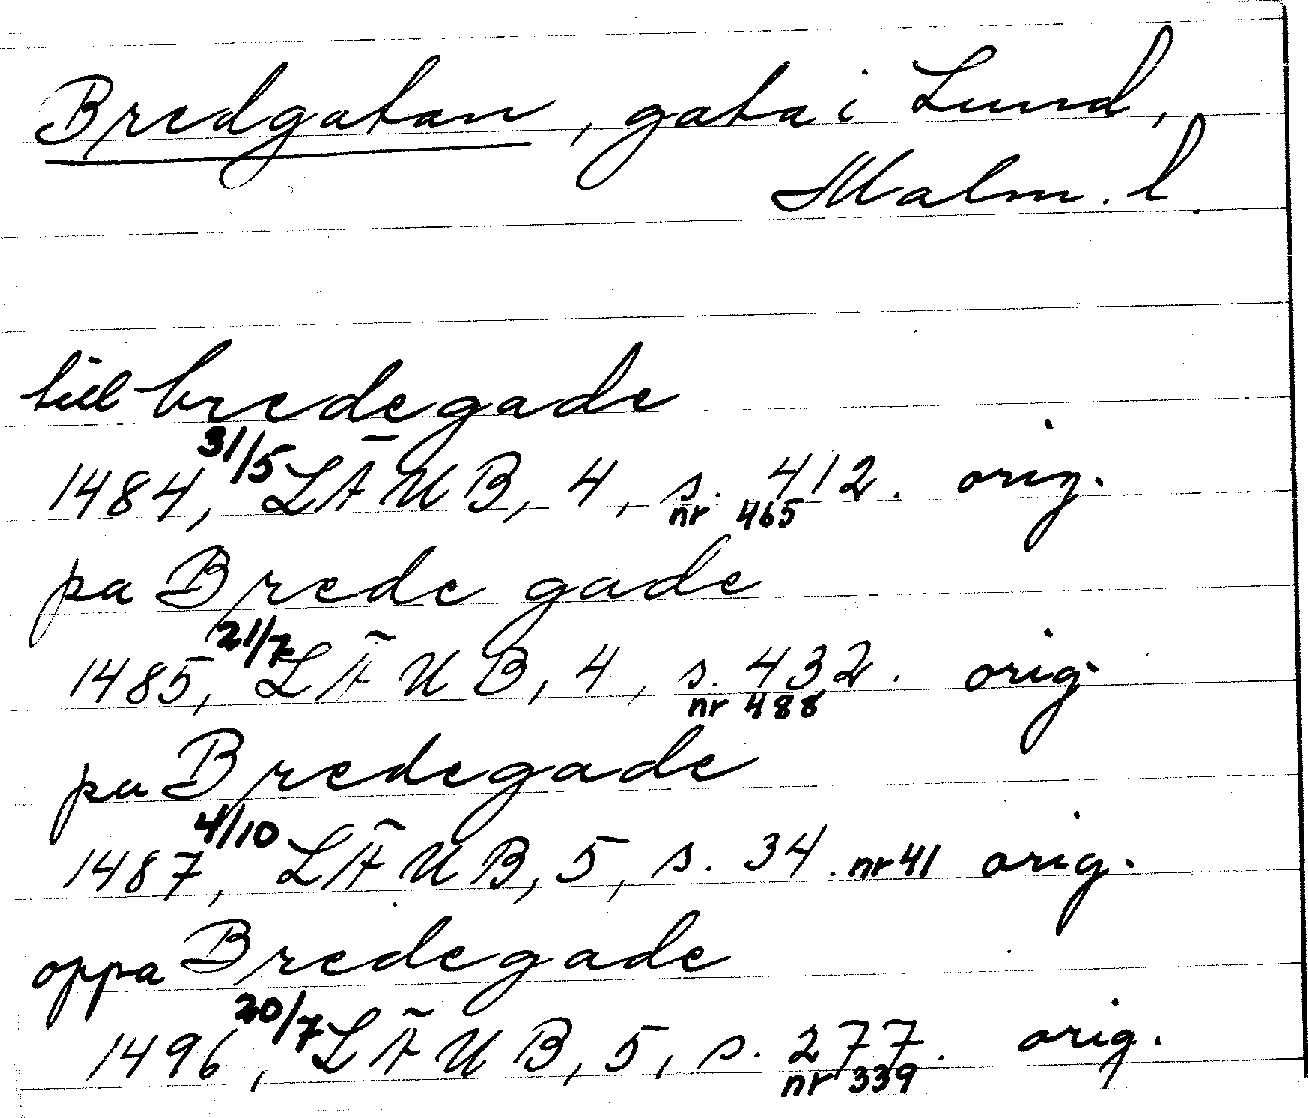 Bredgatan, gata i Lund,
Malm. l.
till bredegade
1484, 31/5 LÄUB, 4, s. 412. orig.
nr 465
pa Brede gade
1485, 21/7 LÄUB, 4, s. 432. orig
nr 488
pa Bredegade
1487, 4/10 LÄUB, 5, s. 34. nr 41 orig.
oppa Bredegade
1496, 20/7 LÄUB, 5, s. 277. orig.
nr 339